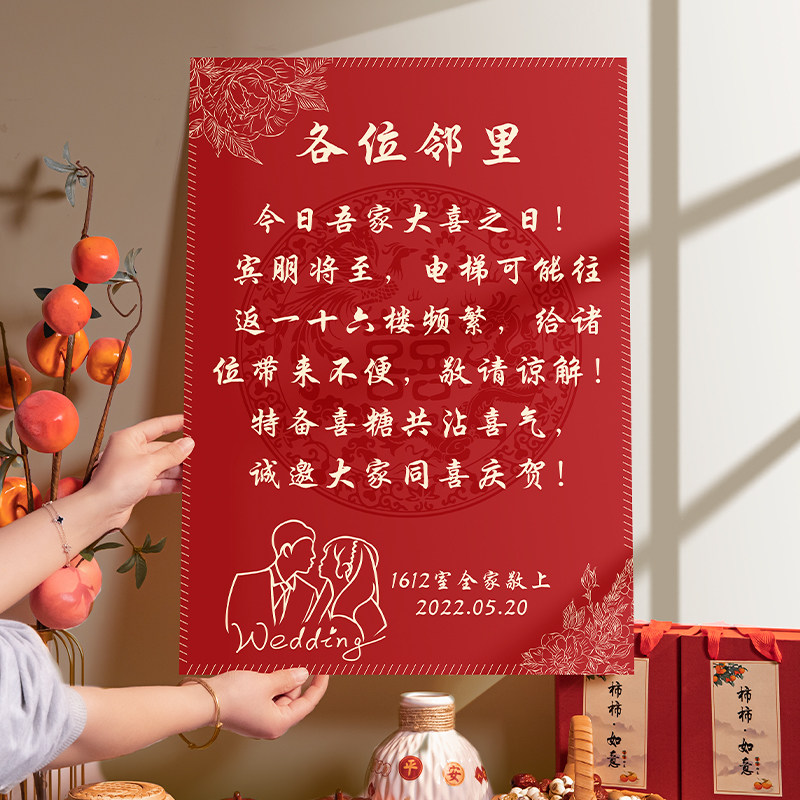 各位邻里
今日吾家大喜之日！
宾朋将至，电梯可能往
返一十六楼频繁，给诸
位带来不便，敬请谅解！
特备喜糖共沾喜气，
诚邀大家同喜庆贺！
1612室全家敬上
2022.05.20
Wedding
柿柿·如意
柿柿·如意
平安